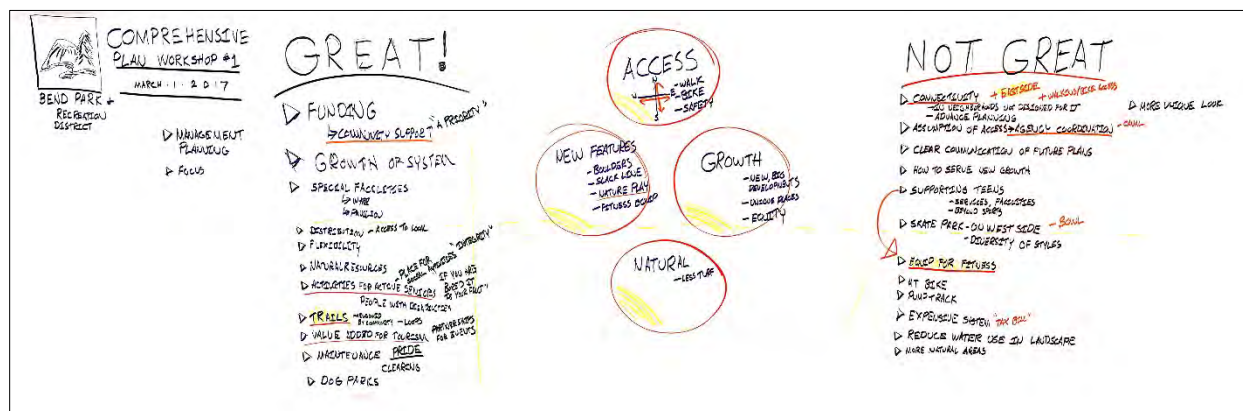 COMPREHENSIVE
PLAN WORKSHOP #1
MARCH 1. 2017
BEND PARK +
RECREATION
DISTRICT
MANAGEMENT
PLANNING
FOCUS
GREAT!
FUNDING
COMMUNITY SUPPORT "A PRIORITY"
GROWTH OF SYSTEM
SPECIAL FACILITIES
PAVILION
DISTRIBUTION - ACCESS TO LOCAL
FLEXIBILITY
NATURAL RESOURCES
- PLACE FOR
"INTEGRITY"
ACTIVITIES FOR ACTIVE SENIORS
IF YOU ARE
BORED IT
IS YOUR FAULT"
PEOPLE WITH DISABILITIES
TRAILS
BY COMMUNITY - LOOPS
VALUE ADDED FOR TOURISM
PARTNERSHIPS
FOR EVENTS
MAINTENANCE PRIDE
CLEARING
DOG PARKS
ACCESS
N
W E
S
- WALK
- BIKE
- SAFETY
NEW FEATURES
- BOULDERS
- SLACK LINE
- NATURE PLAY
- FITNESS EQUIP
GROWTH
- NEW, BIG
DEVELOPMENTS
- UNIQUE PLACES
- EQUITY
NATURAL
- LESS TURF
NOT GREAT
CONNECTIVITY + EASTSIDE + WALKING/BIKE ACCESS
- IN NEIGHBORHOODS NOT DESIGNED FOR IT
- ADVANCE PLANNING
ASSUMPTION OF ACCESS → AGENCY COORDINATION - CANAL
CLEAR COMMUNICATION OF FUTURE PLANS
HOW TO SERVE NEW GROWTH
SUPPORTING TEENS
- SERVICES, FACILITIES
- BEYOND SPORTS
SKATE PARK - ON WEST SIDE - BOWL
- DIVERSITY OF STYLES
EQUIP FOR FITNESS
MT BIKE
PUMPTRACK
EXPENSIVE SYSTEM "TAX BILL"
REDUCE WATER USE IN LANDSCAPE
MORE NATURAL AREAS
MORE UNIQUE LOOK